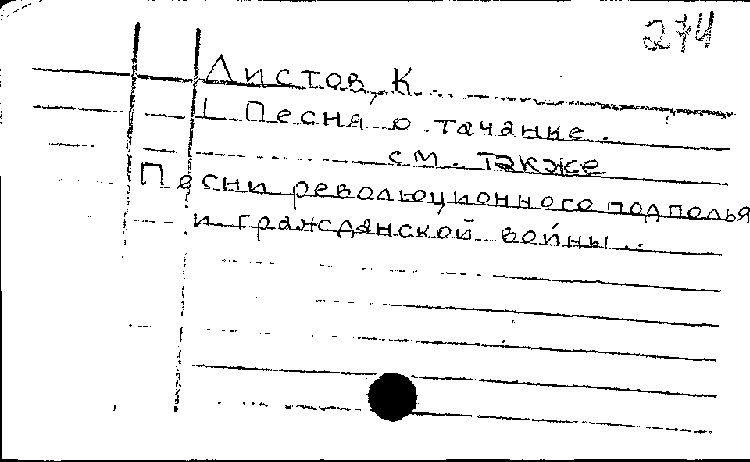 274
Листов, К.
Песня о тачанке.
см. также
Песни революционного подполья
и гражданской войны.